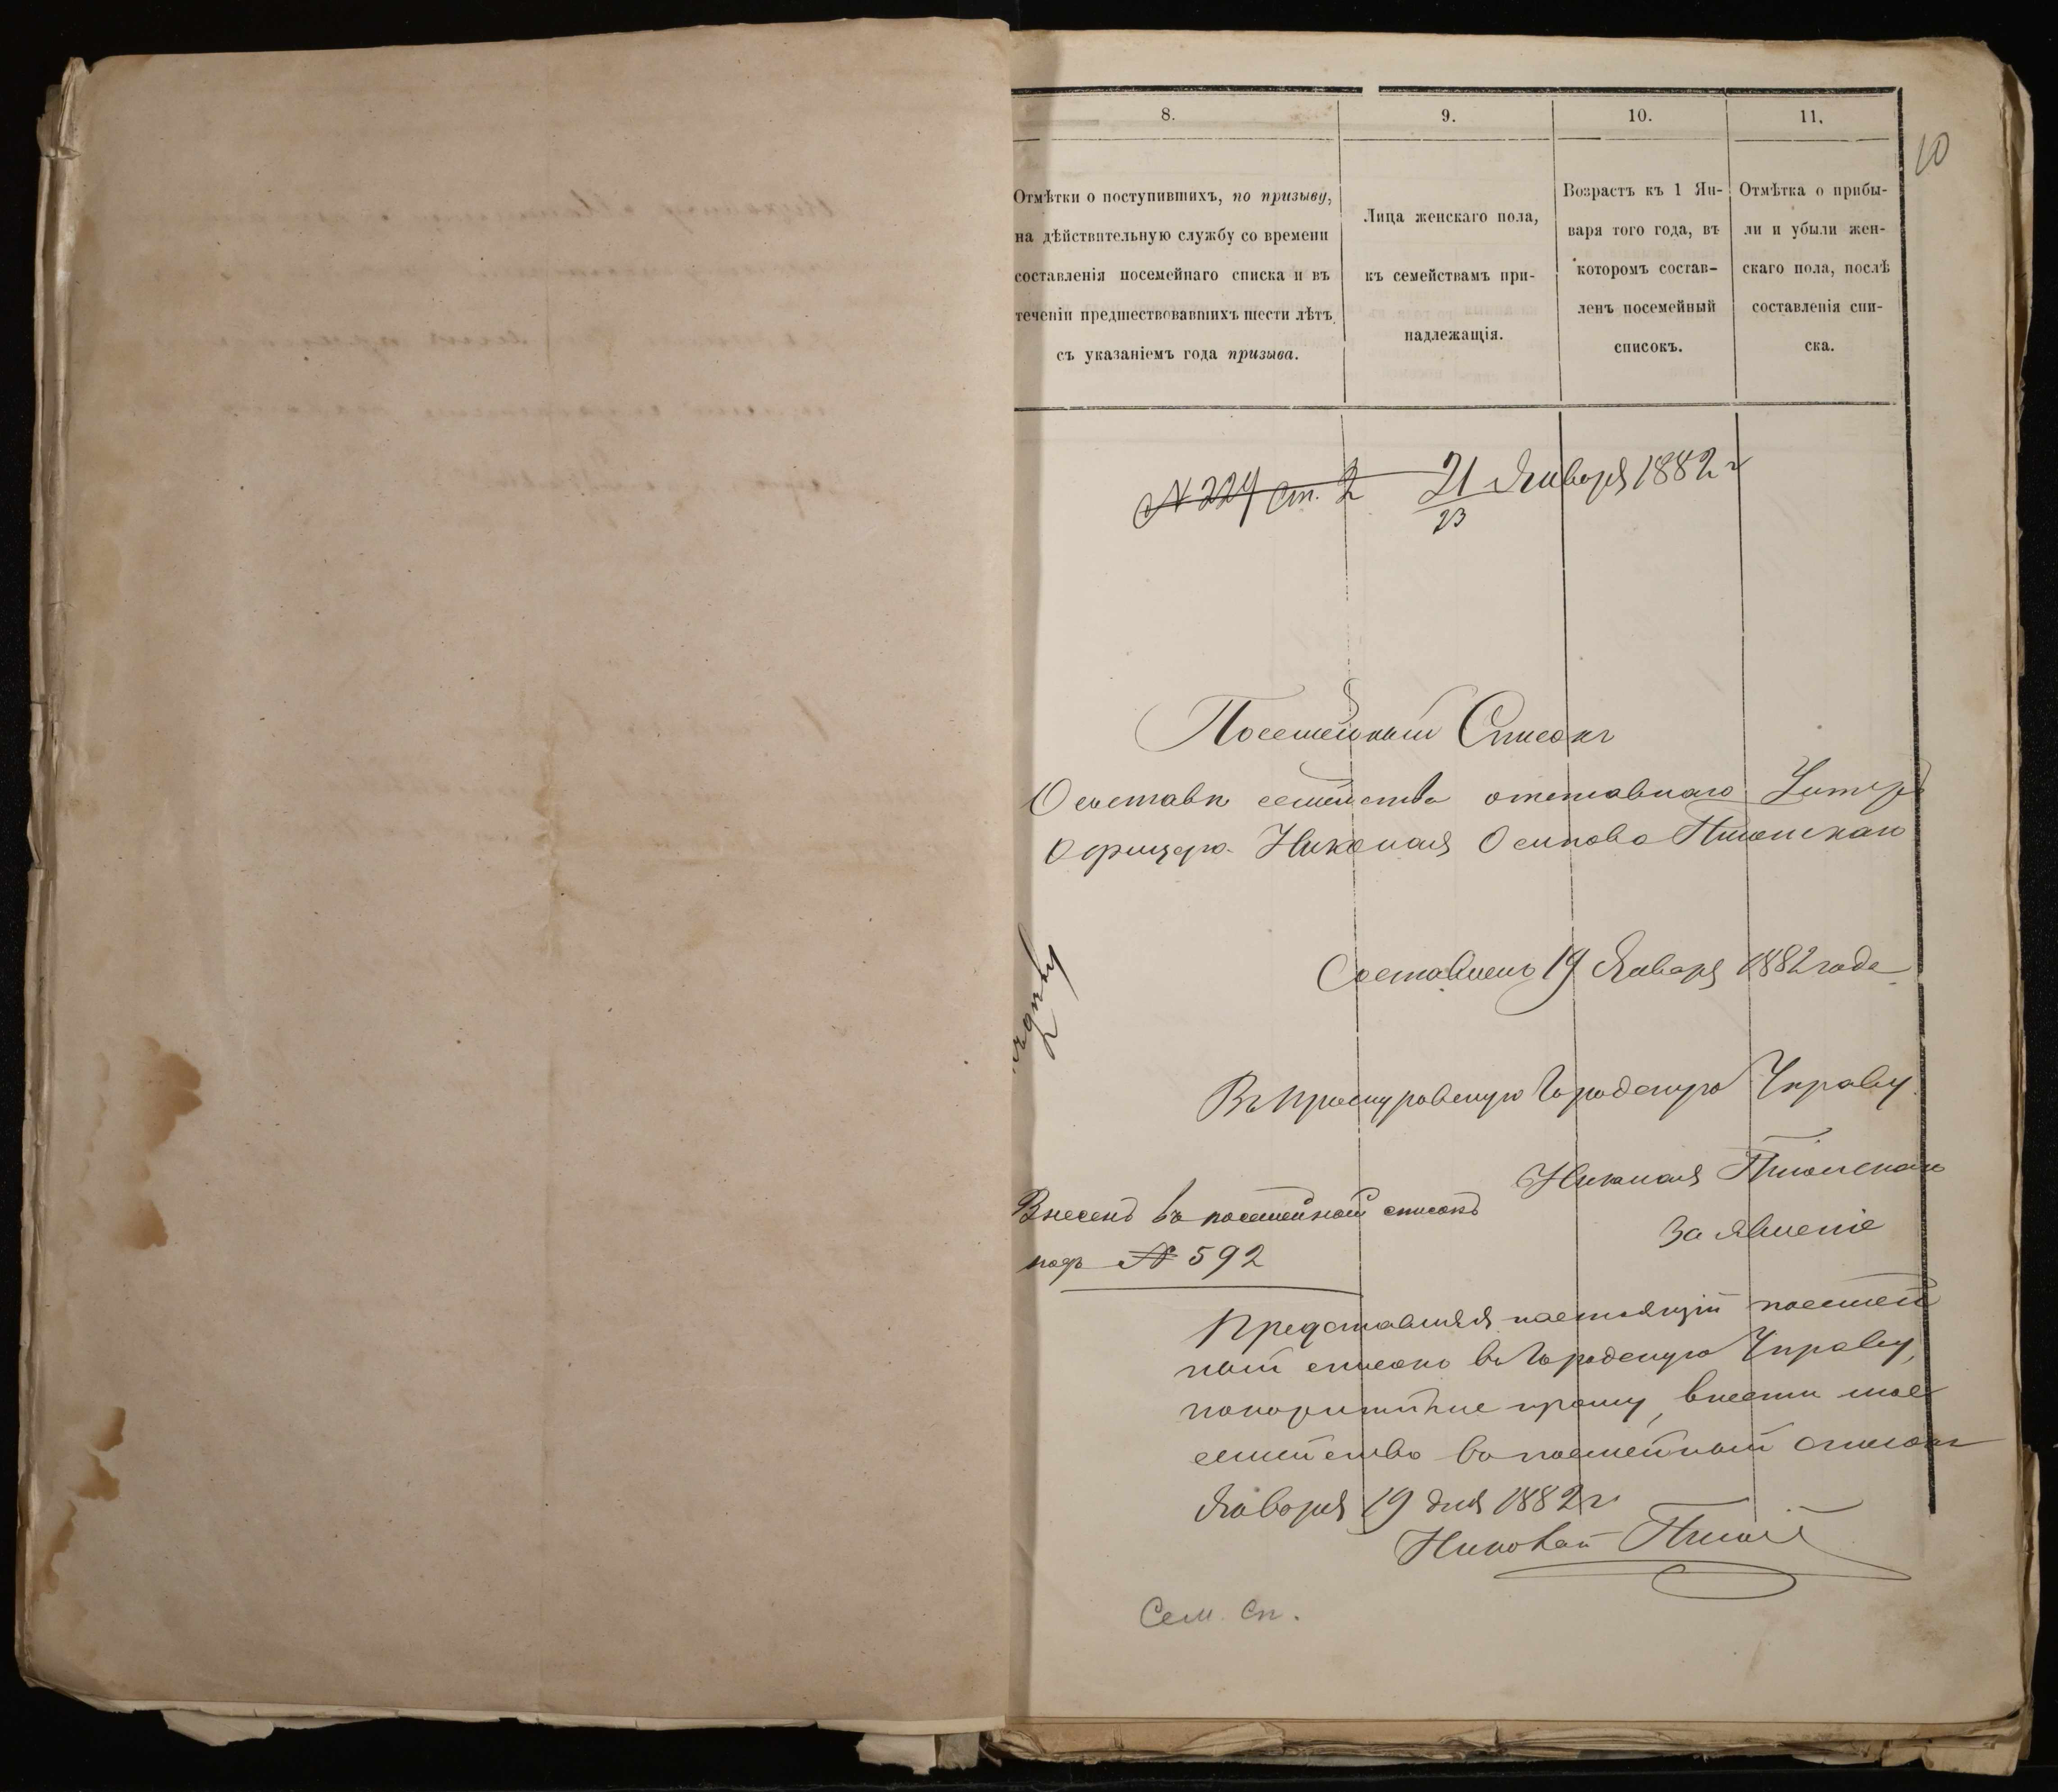 8.
9.
10.
11.
10
Отмѣтки о поступившихъ, по призыву,
на дѣйствительную службу со времени
составленія посемейнаго списка и въ
теченіи предшествовавшихъ шести лѣтъ
съ указаніемъ года призыва.
Лица женскаго пола,
къ семействамъ при-
надлежащія.
Возрастъ къ 1 Ян-
варя того года, въ
которомъ состав-
ленъ посемейный
списокъ.
Отмѣтка о прибы-
ли и убыли жен-
скаго пола, послѣ
составленія спи-
ска.
№ 224 ст. 2 21 Января 1882 г
23
Посемейный Списокъ
О составѣ семейства отставнаго Унтеръ
Офицера Николая Осипова
Составленъ 19 Января 1882 года
Въ Проскуровскую Городскую Управу
Николая
Заявленіе
Внесенъ въ посемейный списокъ
подъ № 592
Представляя настоящій посемей
ный списокъ въ Городскую Управу,
покорнѣйше прошу, внести мое
семейство въ посемейный списокъ
Января 19 дня 1882 г
Николай
Сем. Сп.